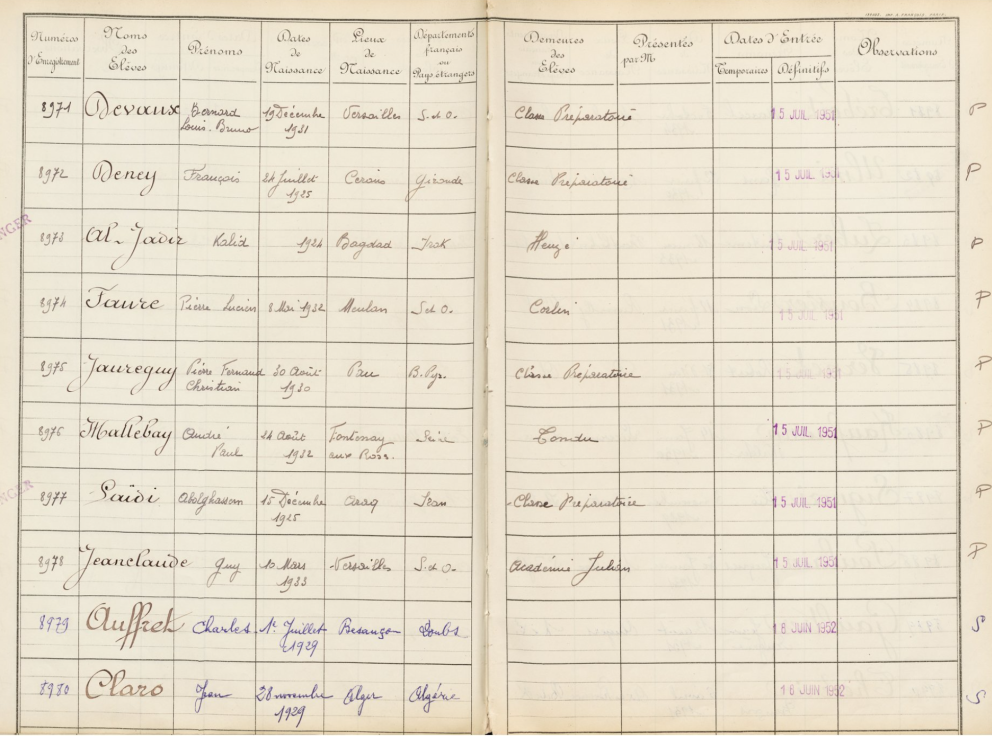 Numéros d'Enregistrement Noms des Elèves Prénoms Dates de Naissance Lieux de Naissance Départements français ou Pays étrangers Demeures des Elèves Présentés par M Dates d'Entrée Temporaires Définitifs Observations
8971 Devaux Bernard Louis-Bruno 19 Décembre 1931 Versailles S. et O. Classe Préparatoire 15 JUIL 1951 P
8972 Deney François 24 Juillet 1925 Gironde Classe Préparatoire 15 JUIL 1951 P
8973 Al-Jadir Kalid 1924 Bagdad Irak 15 JUIL 1951 P
8974 Faure Pierre Lucien 8 Mai 1932 Meulan S et O. Corlin 15 JUIL 1951 P
8975 Jaureguy Pierre Fernand Christian 30 Août 1930 Pau B. Pyr. Classe Préparatoire 15 JUIL 1951 P
8976 Mallebay André Paul 24 Août 1932 Fontenay aux Roses. Seine Tondu 15 JUIL 1951 P
8977 Saïdi Abolghassem 15 Décembre 1925 Araq Iran Classe Préparatoire 15 JUIL 1951 P
8978 Jeanclaude Guy 10 Mars 1933 Versailles S. et O. Académie Julian 15 JUIL 1951 P
8979 Auffret Charles 1er Juillet 1929 Besançon Doubs 18 JUIN 1952 S
8980 Claro Jean 28 novembre 1929 Alger Algérie 16 JUIN 1952 S